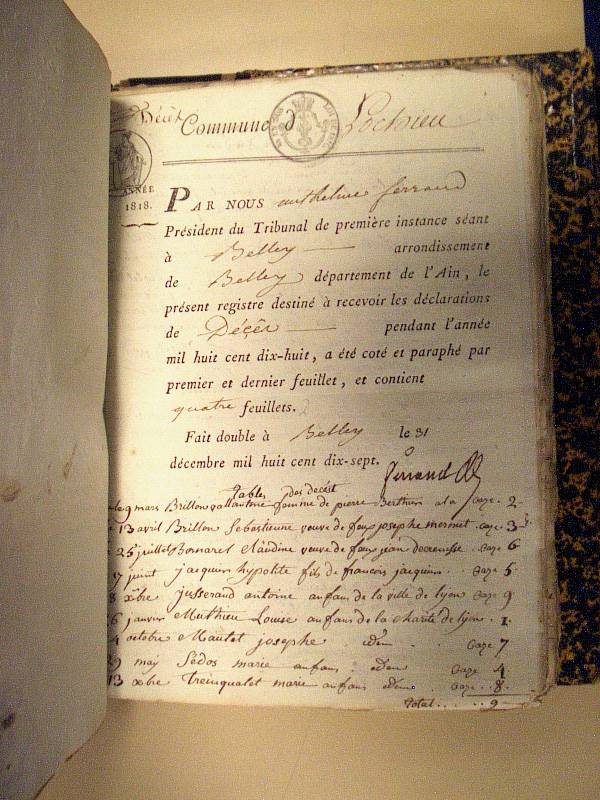 Décès
Commune d Lochieu
ANNÉE
1818.
PAR NOUS anthelme ferrand
Président du Tribunal de première instance séant
à Belley arrondissement
de Belley département de l'Ain, le
présent registre destiné à recevoir les déclarations
de Décès pendant l'année
mil huit cent dix-huit, a été coté et paraphé par
premier et dernier feuillet, et contient
quatre feuillets.
Fait double à Belley le 31
décembre mil huit cent dix-sept.
ferrand
Tables des décést
9 mars Brillon femme de pierre Berthier a la page 2
13 avril Brillon Sebastienne veuve de feu josephe mermet page 3
25 juillet Bonnard Claudine veuve de feu jean page 6
7 juint jacquin hypolite fils de francois jacquin page 5
8 xbre jusserand antoine anfans de la ville de lyon page 9
6 janvier Muthieu Louise anfans de la charité de lyon 1
4 octobre Mautet josephe idem page 7
29 may Sédos marie anfans idem page 4
13 xbre Treinqualet marie anfans idem page 8
Total 9